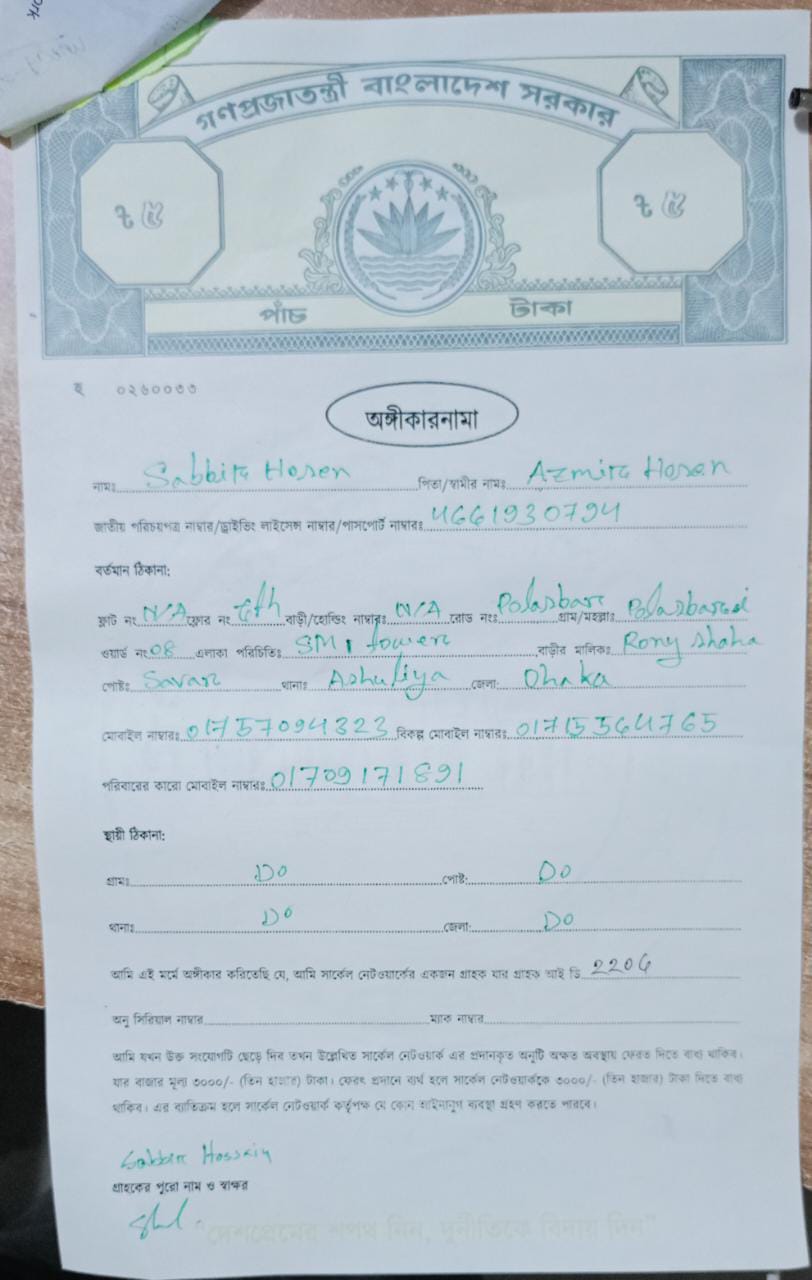 ork
গণপ্রজাতন্ত্রী বাংলাদেশ সরকার
৳ ৫ ৳ ৫
পাঁচ টাকা
হ ০২৬০০৩৩
অঙ্গীকারনামা
নামঃ Sabbir Hosen পিতা/স্বামীর নামঃ Azmir Hosen
জাতীয় পরিচয়পত্র নাম্বার/ড্রাইভিং লাইসেন্স নাম্বার/পাসপোর্ট নাম্বারঃ 4661930794
বর্তমান ঠিকানা:
ফ্লাট নং N/A ফ্লোর নং বাড়ী/হোল্ডিং নাম্বারঃ N/A রোড নংঃ Polasbari গ্রাম/মহল্লাঃ Polasbari
ওয়ার্ড নং 08 এলাকা পরিচিতিঃ SM 1 tower বাড়ীর মালিকঃ Rony shaha
পোষ্টঃ Savar থানাঃ Ashuliya জেলা: Dhaka
মোবাইল নাম্বারঃ 01757094323 বিকল্প মোবাইল নাম্বারঃ
পরিবারের কারো মোবাইল নাম্বারঃ
স্থায়ী ঠিকানা:
গ্রামঃ Do পোষ্ট: Do
থানাঃ Do জেলা: Do
আমি এই মর্মে অঙ্গীকার করিতেছি যে, আমি সার্কেল নেটওয়ার্কের একজন গ্রাহক যার গ্রাহক আই ডি 2206
অনু সিরিয়াল নাম্বার ম্যাক নাম্বার
আমি যখন উক্ত সংযোগটি ছেড়ে দিব তখন উল্লেখিত সার্কেল নেটওয়ার্ক এর প্রদানকৃত অনুটি অক্ষত অবস্থায় ফেরত দিতে বাধ্য থাকিব।
যার বাজার মূল্য ৩০০০/- (তিন হাজার) টাকা। ফেরৎ প্রদানে ব্যর্থ হলে সার্কেল নেটওয়ার্ককে ৩০০০/- (তিন হাজার) টাকা দিতে বাধ্য
থাকিব। এর ব্যতিক্রম হলে সার্কেল নেটওয়ার্ক কর্তৃপক্ষ যে কোন আইনানুগ ব্যবস্থা গ্রহণ করতে পারবে।
Sabbir Hossain
গ্রাহকের পুরো নাম ও স্বাক্ষর
"দেশপ্রেমের শপথ নিন, দুর্নীতিকে বিদায় দিন"